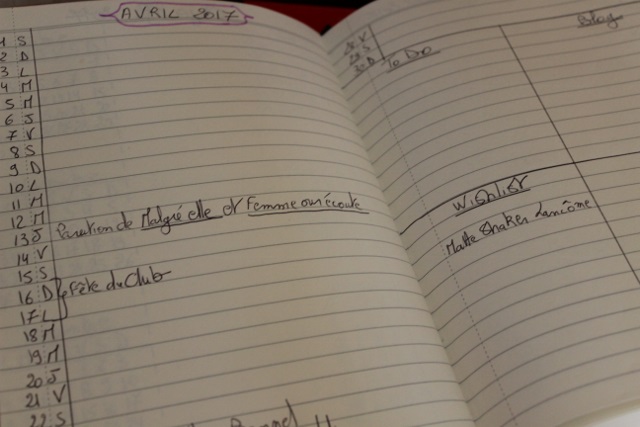 AVRIL 2017
1 S
2 D
3 L
4 M
5 M
6 J
7 V
8 S
9 D
10 L
11 M
12 M
13 J Parution de Malgré elle et Femme qui écoute
14 V
15 S
16 D Fête du Club
17 L
18 M
19 M
20 J
21 V
22 S
28 V
29 S
30 D
To Do
Blog
Wishlist
Matte Shaker Lancôme